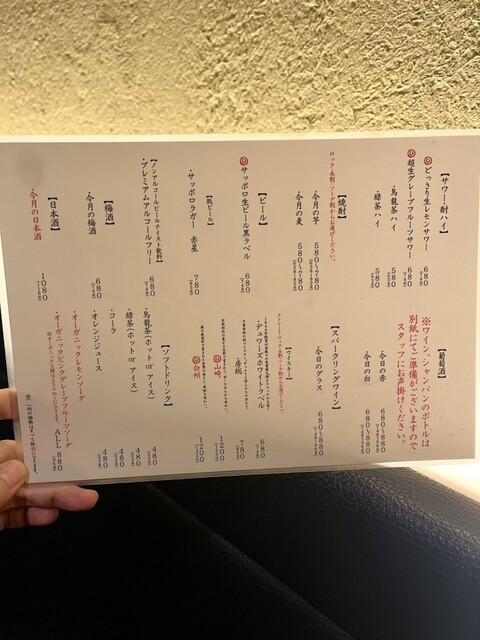 【サワー・酎ハイ】
どっきり生レモンサワー 680
超生グレープフルーツサワー 680
・烏龍茶ハイ 580
・緑茶ハイ 580
【焼酎】
ロック・水割・ソーダ割からお選び下さい。
・今月の芋 580〜780
・今月の麦 580〜780
【ビール】
サッポロ生ビール黒ラベル 680
【瓶ビール】
・サッポロラガー 赤星 780
【ノンアルコールビールテイスト飲料】
・プレミアムアルコールフリー 680
【梅酒】
・今月の梅酒 680
【日本酒】
・今月の日本酒 1080
【葡萄酒】
・今日の赤 680〜880
・今日の白 680〜880
※ワイン、シャンパンのボトルは
別紙にてご準備がございますので
スタッフにお声掛けください。
【スパークリングワイン】
・今日のグラス 680〜880
【ウイスキー】
・デュワーズホワイトラベル 680
780
山崎 1200
白州 1200
【ソフトドリンク】
・烏龍茶(ホット or アイス) 480
・緑茶(ホット or アイス) 480
・コーラ 480
・オレンジジュース 480
・オーガニックレモンソーダ
・オーガニックピンクグレープフルーツソーダ ALL 880